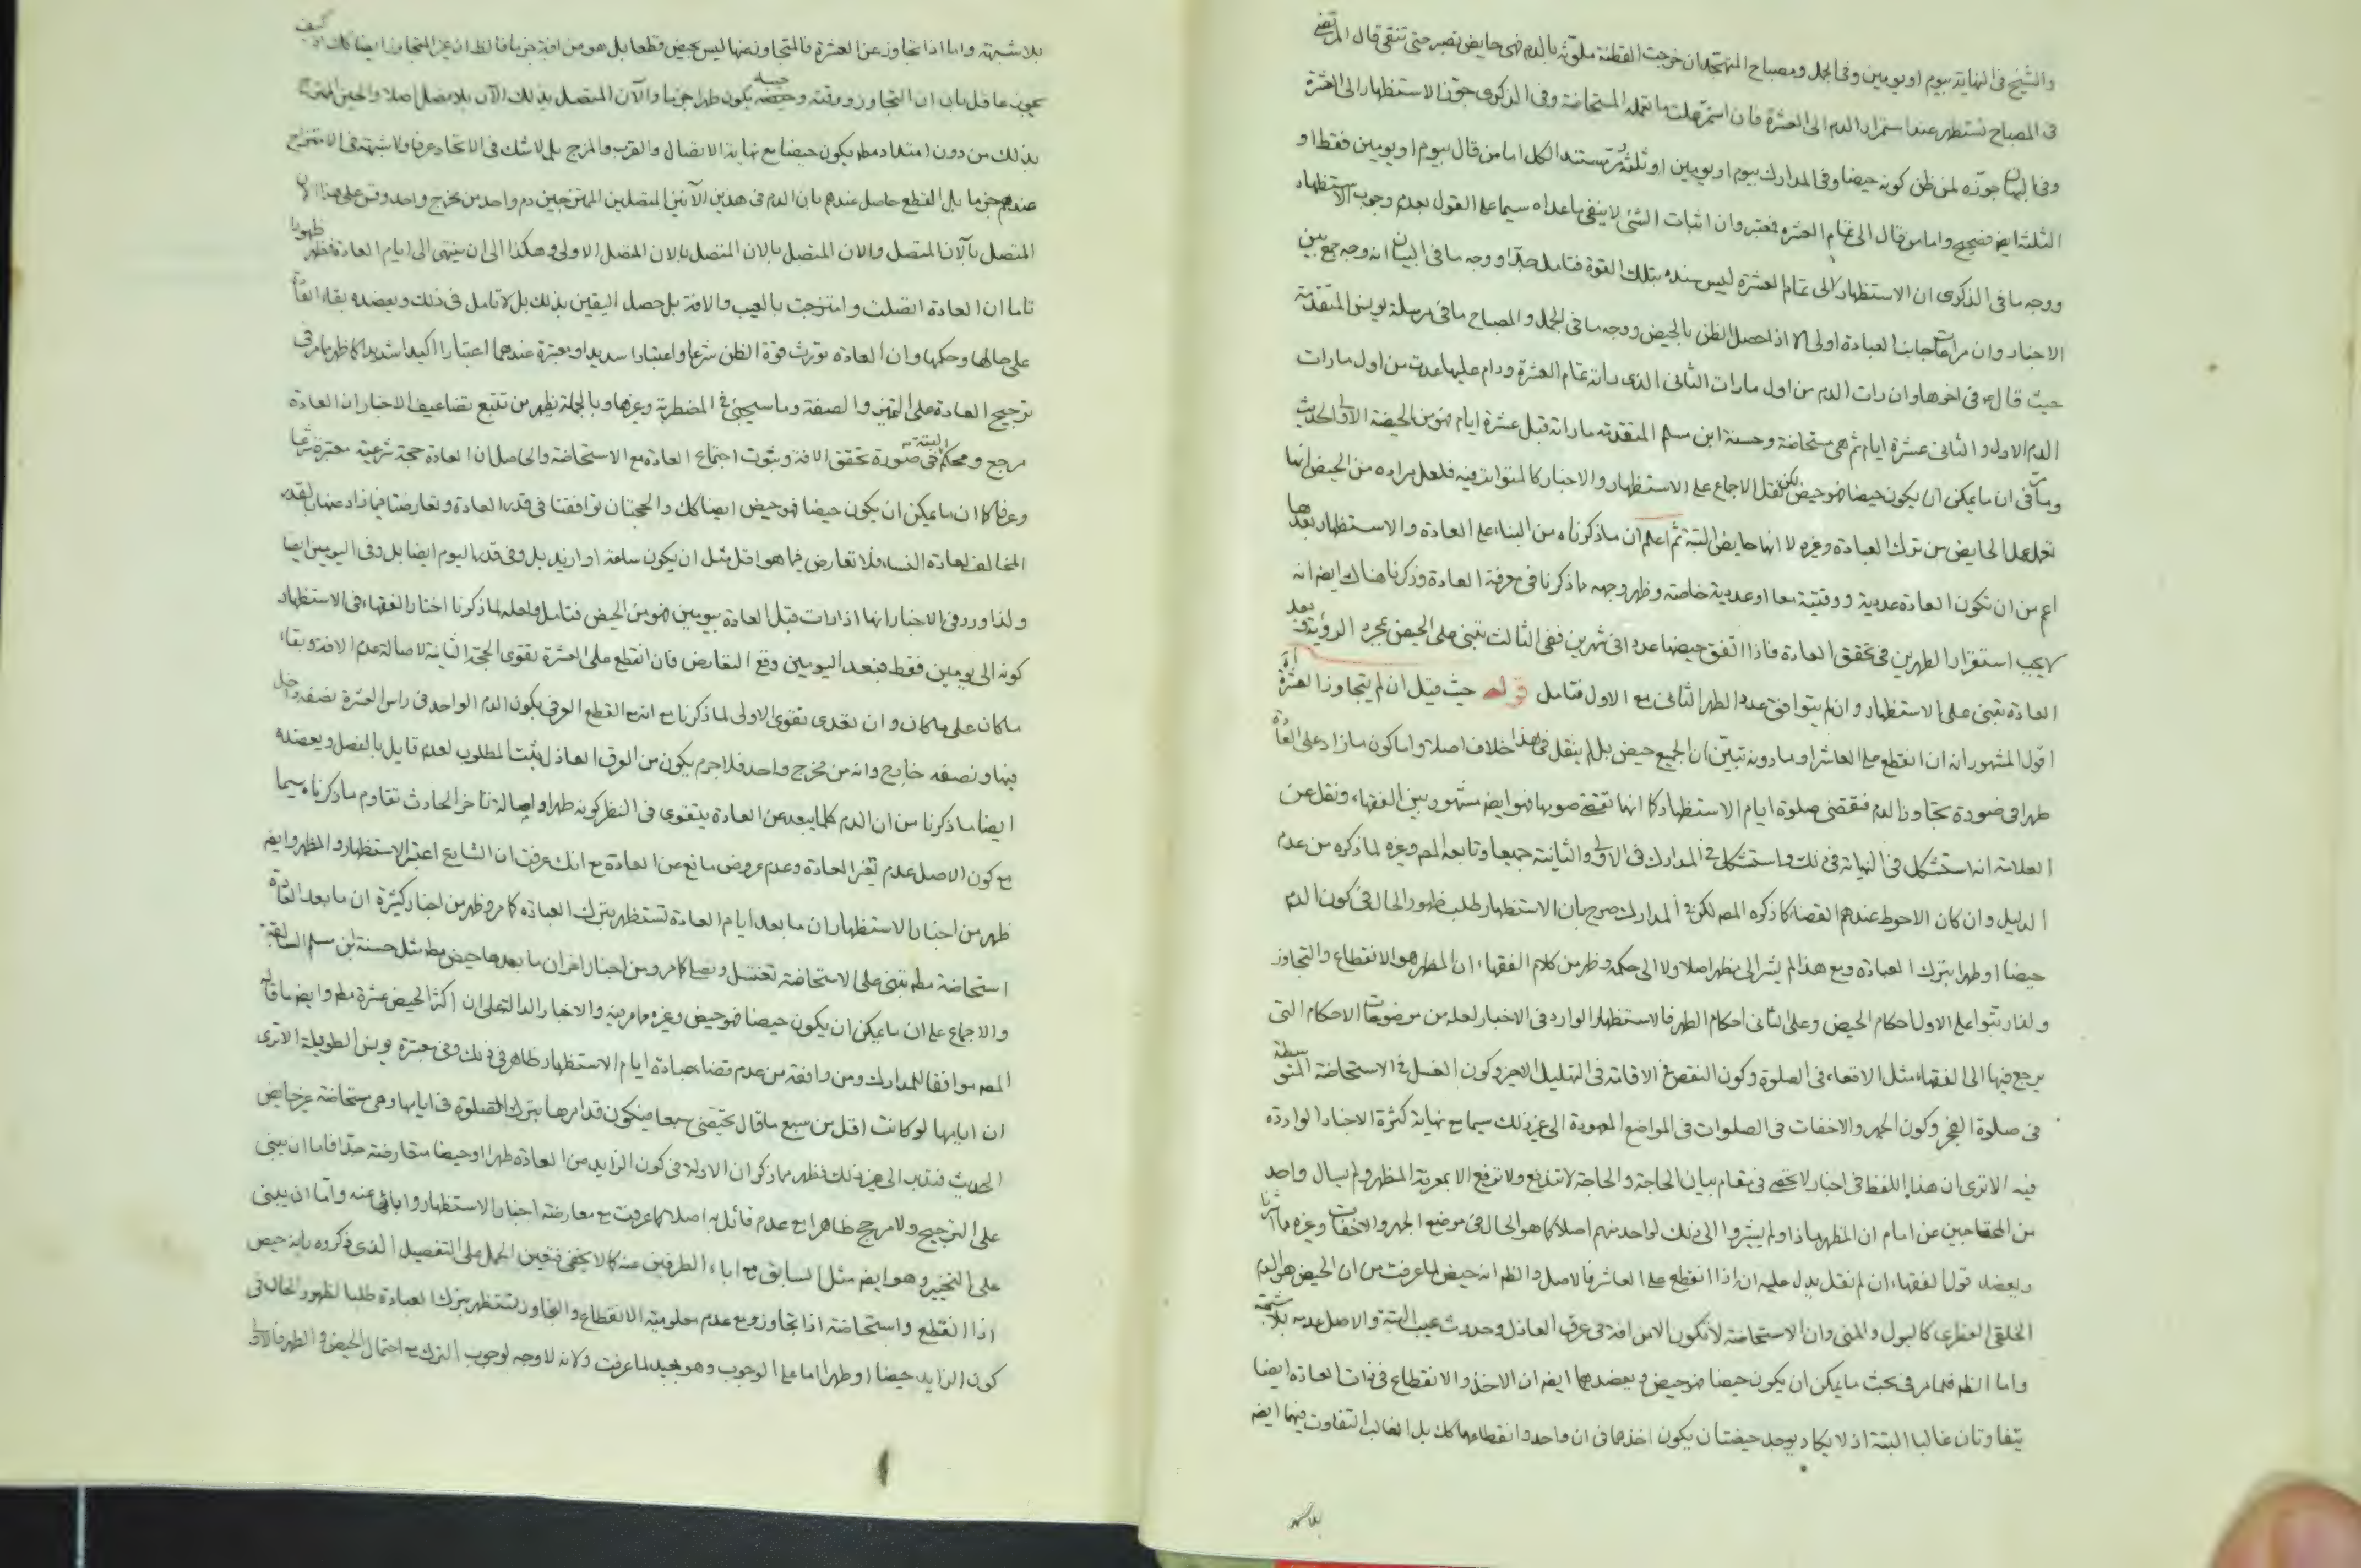 والشيخ فى النهاية بيوم او يومين وفى الجمل ومصباح المتهجد ان خرجت القطنة ملوثة بالدم فهى حايض تصبر حتى تنقى قال المرتضى
فى المصباح تستظهر عند استمرار الدم الى العشرة فان استمر عملت ما تعمله المستحاضة وفى الذكرى جوز الاستظهار الى العشرة
وفى البيان جوزه لمن ظن كونه حيضا وفى المدارك بيوم او يومين او ثلثة مستند الكل اما من قال بيوم او يومين فقط او
الثلثة ايضا فصحيح واما من قال الى تمام العشرة فمعتبر وان اثبات الشئ لا ينفى ما عداه سيما على القول بعدم وجوب الاستظهار
ووجه ما فى الذكرى ان الاستظهار الى تمام العشرة ليس سنده بتلك القوة فتامل جدا ووجه ما فى البيان انه وجه جمع بين
الاخبار وان مراعات جانب العبادة اولى الا اذا حصل الظن بالحيض ووجه ما فى الجمل و المصباح ما فى مرسلة يونس المتقدمة
حيث قال ع فى اخرها وان رات الدم من اول ما رات الثانى الذى راته تمام العشرة ودام عليها عدت من اول ما رات
الدم الاول و الثانى عشرة ايام ثم هى مستحاضة وحسنة ابن مسلم المتقدمة ما راته قبل عشرة ايام فهو من الحيضة الاولى الحديث
وما فى ان ما يمكن ان يكون حيضا فهو حيض لكن نقل الاجماع على الاستظهار والاخبار كالمتواتر فيه فلعل مراده من الحيض انها
تعمل عمل الحايض من ترك العبادة وغيره لا انها حايض البتة ثم اعلم ان ما ذكرناه من البناء على العادة والاستظهار بعدها
اعم من ان تكون العادة عددية ووقتية معا او عددية خاصة وظهر وجهه مما ذكرنا فى معرفة العادة وذكرنا هناك ايضا انه
لا يجب استقرار الطهرين فى تحقق العادة فاذا اتفق حيضها عددا فى شهرين ففى الثالث تبنى على الحيض بمجرد الروية وبعد
العادة تبنى على الاستظهار وان لم يتوافق عدد الطهر الثانى مع الاول فتامل قوله حيث قيل ان لم يتجاوز العشرة اه
اقول المشهور انه ان انقطع على العاشر او ما دونه تبين ان الجميع حيض بل لم ينقل فى هذا خلاف اصلا واما كون ما زاد على العادة
طهرا فى صورة تجاوز الدم فتقضى صلوة ايام الاستظهار كما انها تقضى صومها فهو ايضا مشهور بين الفقهاء ونقل عن
العلامة انه استشكل فى النهاية فى ذلك واستشكل فى المدارك فى الاولى والثانية جميعا وتابعه المص وغيره لما ذكره من عدم
الدليل وان كان الاحوط عندهم القضاء كما ذكره المص لكن فى المدارك صرح بان الاستظهار طلب ظهور الحال فى كون الدم
حيضا او طهرا بترك العبادة ومع هذا لم يشر الى مظهر اصلا ولا الى حكمه وظهر من كلام الفقهاء ان المظهر هو الانقطاع والتجاوز
ولذا رتبوا على الاول احكام الحيض وعلى الثانى احكام الطهر فالاستظهار الوارد فى الاخبار لعله من موضوعات الاحكام التى
يرجع فيها الى الفقهاء مثل الاقعاء فى الصلوة وكون النقص فى الاقامة فى التهليل الاخير وكون الغسل فى الاستحاضة المتوسطة
فى صلوة الفجر وكون الجهر والاخفات فى الصلوات فى المواضع المعهودة الى غير ذلك سيما مع نهاية كثرة الاخبار الواردة
فيه الا ترى ان هذا اللفظ فى اخبار لا تحصى فى مقام بيان الحاجة والحاجة لا تندفع ولا ترفع الا بمعرفة المظهر ولم يسال واحد
من المحتاجين عن امام ان المظهر ماذا ولم يشيروا الى ذلك لواحد منهم اصلا كما هو الحال فى موضع الجهر والاخفات وغيره مما اشرنا
ويعضد قول الفقهاء ان لم نقل يدل عليه ان اذا انقطع على العاشر فالاصل والظ انه حيض لما عرفت من ان الحيض هو الدم
الخلقى الفطرى كالبول والمنى وان الاستحاضة لا تكون الا من افة فى عرق العاذل وحدوث عيب البتة والاصل عدمه بلا شبهة
واما الظ فلما مر فى بحث ما يمكن ان يكون حيضا فهو حيض ويعضدهما ايضا ان الاخذ والانقطاع فى ذات العادة ايضا
يتفاوتان غالبا البتة اذ لا يكاد يوجد حيضتان يكون اخذهما فى ان واحد وانقطاعهما كك بل الغالب التفاوت فيهما ايضا
بلا شبهة
بلا شبهة واما اذا تجاوز عن العشرة فالمتجاوز منها ليس بحيض قطعا بل هو من افة جزما فالظ ان غير المتجاوز ايضا كك اذ كيف
يجوز عاقل بان ان التجاوز ووقته وحيضه يكون طهرا جزما والآن المتصل بذلك الآن بلا فصل اصلا والحيض الممتزج
بذلك من دون امتداد مط يكون حيضا مع نهاية الاتصال والقرب والمزج بل لا شك فى الاتحاد عرفا ولا شبهة فى الامتزاج
عندهم جزما بل القطع حاصل عندهم بان الدم فى هذين الآنين المتصلين الممتزجين دم واحد من مخرج واحد وقس على هذا الان
المتصل بالآن المتصل والان المتصل بالان المتصل بالان المتصل الاولى وهكذا الى ان ينتهى الى ايام العادة فظهر ظهورا
تاما ان العادة اتصلت وامتزجت بالعيب والافة بل حصل اليقين بذلك بل لا تامل فى ذلك ويعضده بقاء العادة
على حالها وحكمها وان العادة تورث قوة الظن شرعا واعتبارا سديدا ومعتبرة عندهما اعتبارا اكيدا شديدا كما ظهر مما مر فى
ترجيح العادة على التميز والصفة وما سيجئ فى المضطربة وغيرها وبالجملة يظهر من تتبع تضاعيف الاخبار ان العادة
مرجع ومحكم البتة فى صورة تحقق الافة وثبوت اجتماع العادة مع الاستحاضة والحاصل ان العادة حجة شرعية معتبرة شرعا
وعرفا كما ان ما يمكن ان يكون حيضا فهو حيض ايضا كك والحجتان توافقتا فى قدر العادة وتعارضتا فيما زاد عنها بالقدر
المخالف لعادة النساء فلا تعارض فيما هو اقل مثل ان يكون ساعة او ازيد بل وفى قدر اليوم ايضا بل وفى اليومين ايضا
ولذا ورد فى الاخبار انها اذا رات قبل العادة بيومين فهو من الحيض فتامل ولعله لما ذكرنا اختار الفقهاء فى الاستظهار
كونه الى يومين فقط فبعد اليومين وقع التعارض فان انقطع على العشرة تقوى الحجة الثانية لاصالة عدم الافة وبقاء
ما كان على ما كان وان تعدى تقوى الاولى لما ذكرنا مع انه مع القطع العرفى بكون الدم الواحد فى راس العشرة نصفه داخل
فيها ونصفه خارج وانه من مخرج واحد فلا جرم يكون من العرق العاذل فيثبت المطلوب لعدم قايل بالفصل ويعضده
ايضا ما ذكرنا من ان الدم كلما يبعد عن العادة يتقوى فى النظر كونه طهرا واصالة تاخر الحادث تقاوم ما ذكرناه سيما
مع كون الاصل عدم تغير العادة وعدم عروض مانع عن العادة مع انك عرفت ان الشارع اعتبر الاستظهار والمظهر وايضا
ظهر من اخبار الاستظهار ان ما بعد ايام العادة تستظهر بترك العبادة كما مر وظهر من اخبار كثيرة ان ما بعد العادة
استحاضة مط تبنى على الاستحاضة تغتسل وتصلى كما مر ومن اخبار اخر ان ما بعدها حيض مط مثل حسنة ابن مسلم السابقة
والاجماع على ان ما يمكن ان يكون حيضا فهو حيض وغيره مما مر فيه والاخبار الدالة على ان اكثر الحيض عشرة مط وايضا ما قاله
المص موافقا للمدارك ومن وافقه من عدم قضاء عبادة ايام الاستظهار ظاهر فى ذلك وفى معتبرة يونس الطويلة الا ترى
ان ايامها لو كانت اقل من سبع ما قال تحيضى سبعا فيكون قد امرها بترك الصلوة فى ايامها وهى مستحاضة غير حايض
الحديث فتدبر الى غير ذلك فظهر مما ذكر ان الادلة فى كون الزايد من العادة طهرا او حيضا متعارضة جدا فاما ان يبنى
على الترجيح ولا مرجح ظاهرا مع عدم قائل به اصلا كما عرفت مع معارضته اخبار الاستظهار وابائها عنه واما ان يبنى
على التخيير وهو ايضا مثل السابق مع اباء الطرفين عنه كما لا يخفى فتعين الحمل على التفصيل الذى ذكروه بانه حيض
اذا انقطع واستحاضة اذا تجاوز ومع عدم معلومية الانقطاع والتجاوز تستظهر بترك العبادة طلبا لظهور الحال فى
كون الزايد حيضا او طهرا اما على الوجوب وهو بعيد لما عرفت ولانه لا وجه لوجوب الترك مع احتمال الحيض والطهر فالاولى